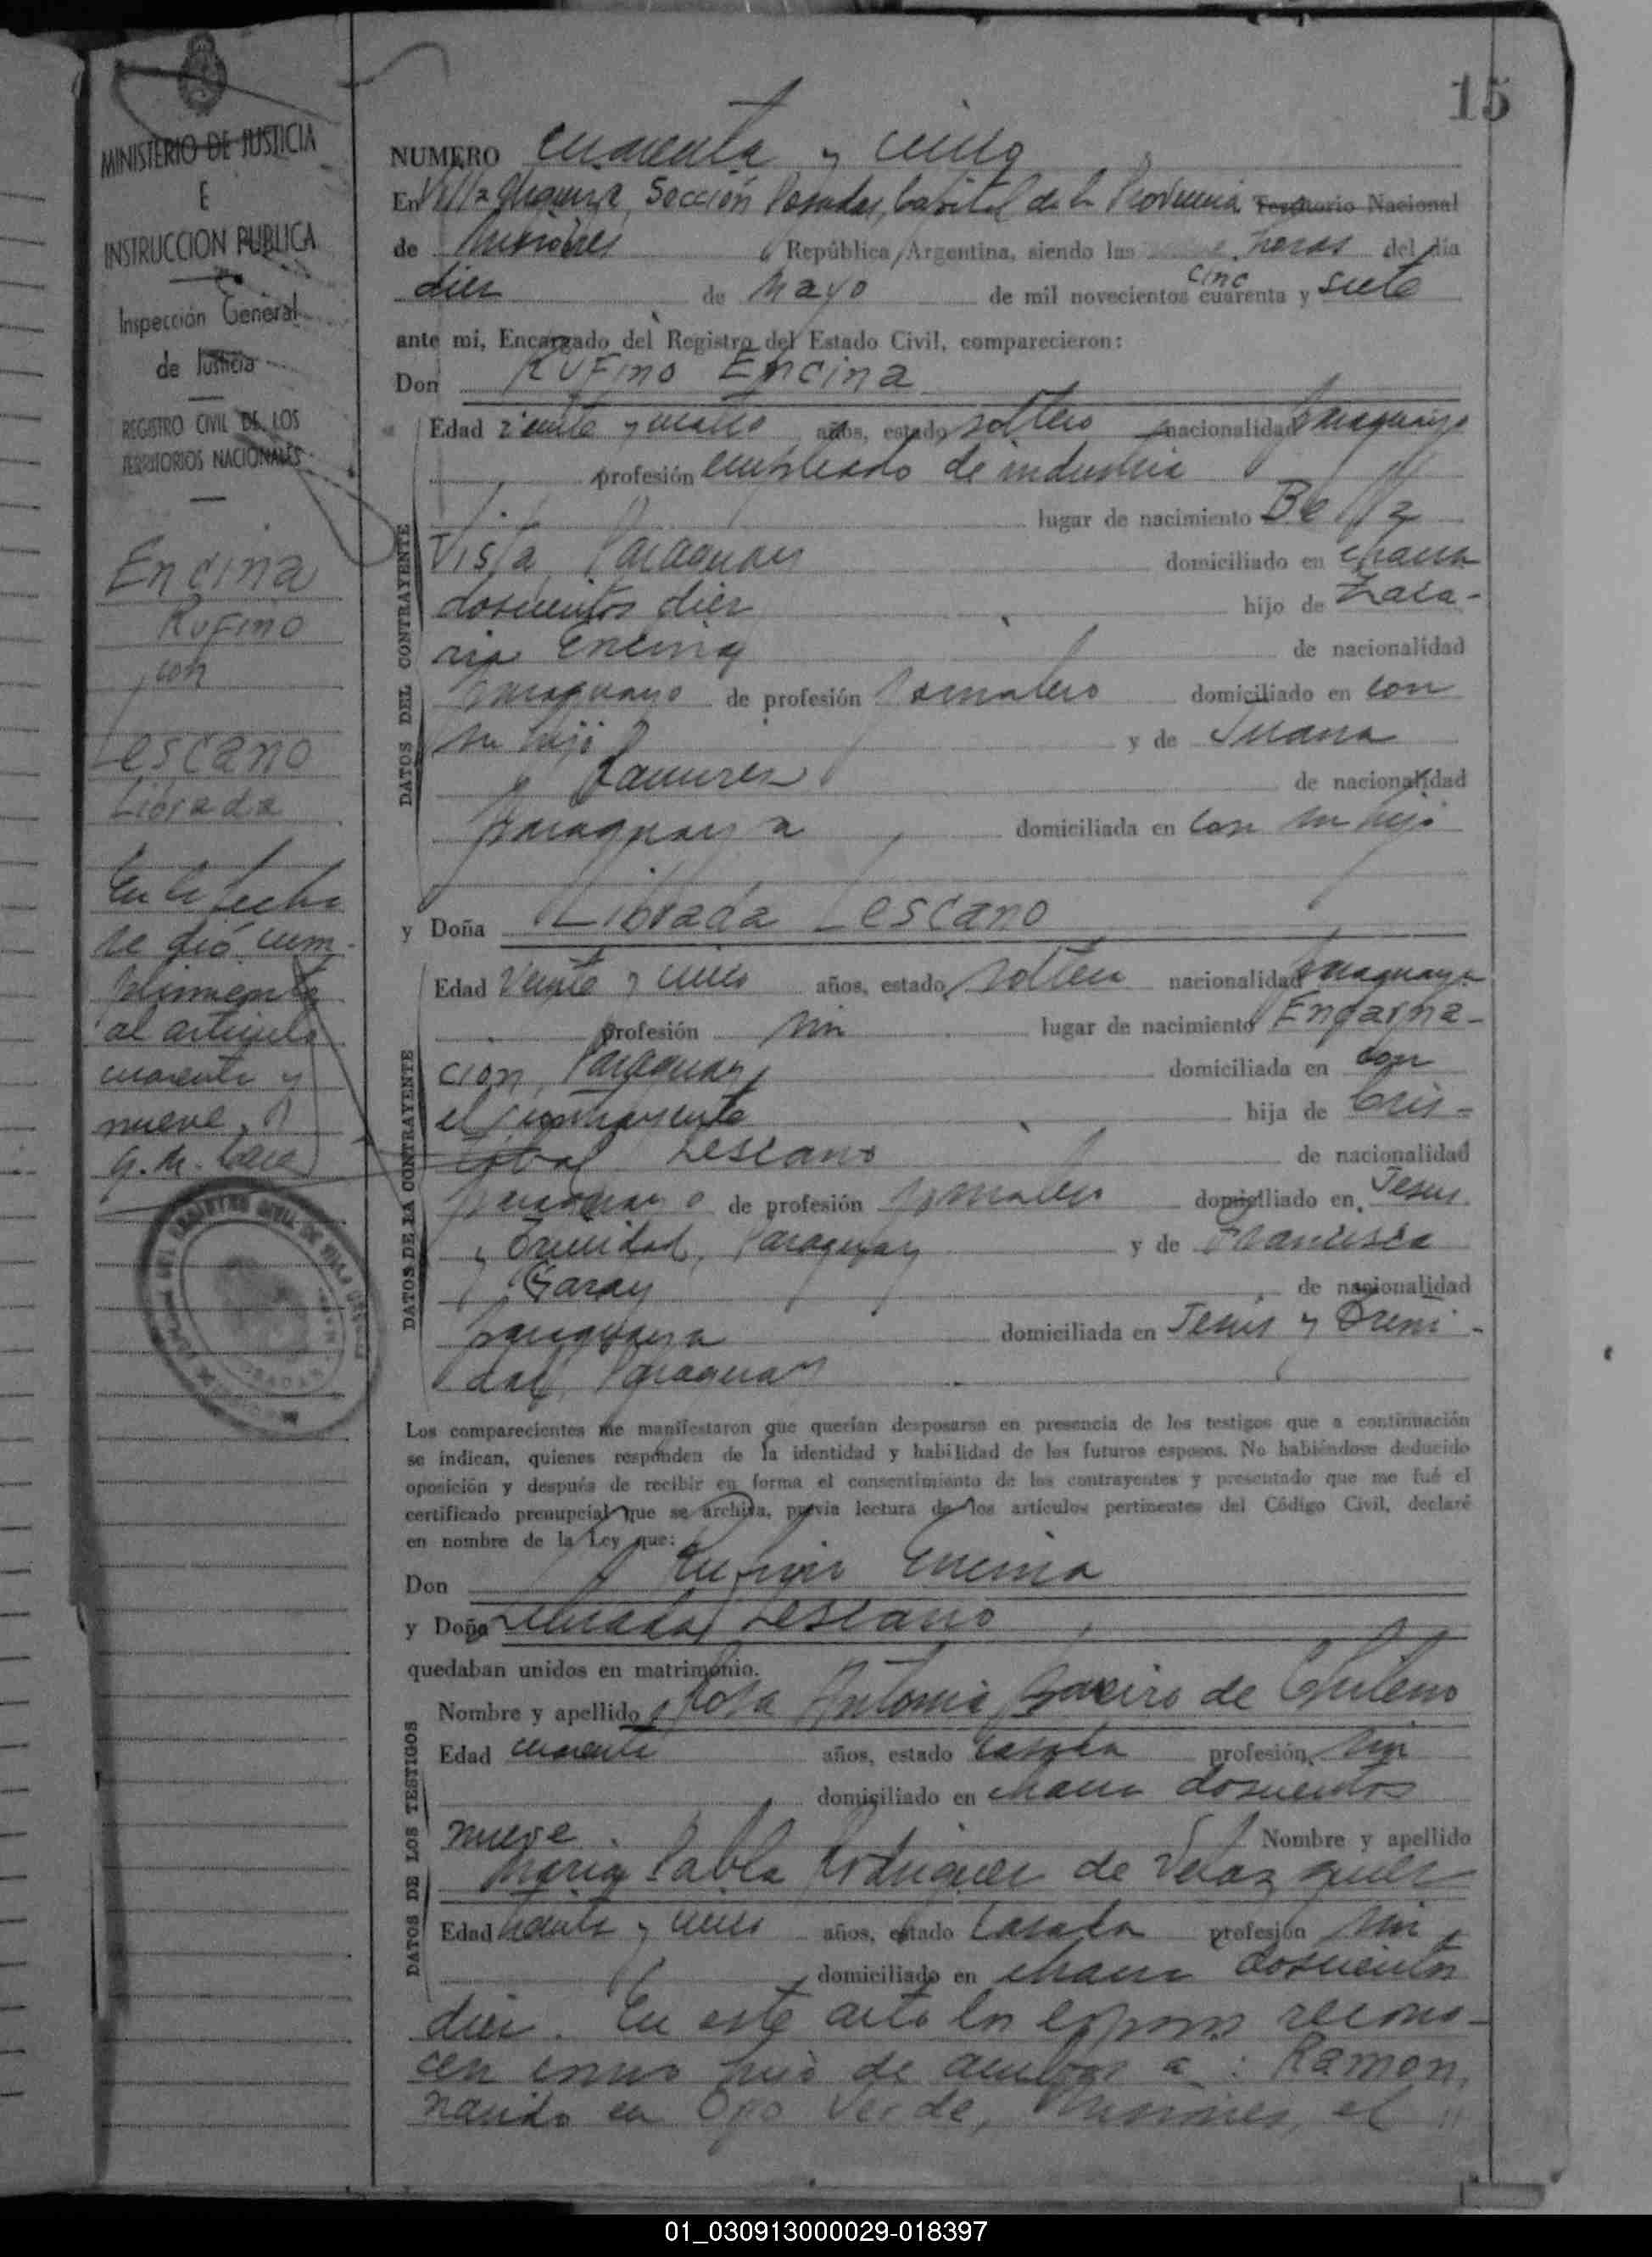 15
MINISTERIO DE JUSTICIA
E
INSTRUCCION PUBLICA
Inspección General
de Justicia
REGISTRO CIVIL DE LOS
TERRITORIOS NACIONALES
Encina
Rufino
con
Lescano
Librada
En la fecha
se dió cum-
plimiento
al articulo
cuarenta y
nueve.
NUMERO cuarenta y cinco
En Villa Urquiza, Sección Posadas, Capital de la Provincia Territorio Nacional
de Misiones República Argentina, siendo las horas del día
diez de Mayo de mil novecientos cinc cuarenta y siete
ante mi, Encargado del Registro del Estado Civil, comparecieron:
Don Rufino Encina
DATOS DEL CONTRAYENTE
Edad veinte y cuatro años, estado soltero nacionalidad paraguayo
profesión empleado de industria
lugar de nacimiento Bella
Vista, Paraguay domiciliado en chacra
doscientos diez hijo de Zaca-
rias Encina de nacionalidad
paraguayo de profesión jornalero domiciliado en con
su hijo y de Juana
Ramirez de nacionalidad
paraguaya domiciliada en con su hijo
y Doña Librada Lescano
DATOS DE LA CONTRAYENTE
Edad Veinte y cinco años, estado soltera nacionalidad paraguaya
profesión sin lugar de nacimiento Encarna-
cion, Paraguay domiciliada en con
el contrayente hija de Cris-
tobal Lescano de nacionalidad
paraguayo de profesión jornalero domiciliado en Jesus
y Trinidad, Paraguay y de Francisca
Garay de nacionalidad
paraguaya domiciliada en Jesus y Trini-
dad, Paraguay
Los comparecientes me manifestaron que querían desposarse en presencia de los testigos que a continuación
se indican, quienes responden de la identidad y habilidad de los futuros esposos. No habiéndose deducido
oposición y después de recibir en forma el consentimiento de los contrayentes y presentado que me fué el
certificado prenupcial que se archiva, previa lectura de los artículos pertinentes del Código Civil, declaré
en nombre de la Ley que:
Don Rufino Encina
y Doña Librada Lescano
quedaban unidos en matrimonio.
DATOS DE LOS TESTIGOS
Nombre y apellido Rosa Antonia de
Edad cuarenta años, estado casada profesión sin
domiciliado en chacra doscientos
nueve. Nombre y apellido
Maria Pabla Rodriguez de Velazquez
Edad treinta y cinco años, estado casada profesión sin
domiciliado en chacra doscientos
diez. En este acto los esposos recono-
cen como hijo de ambos a: Ramon,
nacido en Opo Verde, Misiones, el
01_030913000029-018397